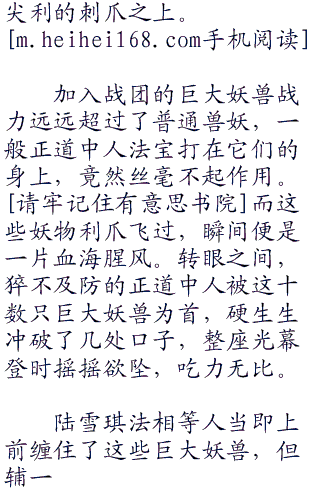 尖利的刺爪之上。
[m.heihei168.com手机阅读]
加入战团的巨大妖兽战
力远远超过了普通兽妖，一
般正道中人法宝打在它们的
身上，竟然丝毫不起作用。
[请牢记住有意思书院]而这
些妖物利爪飞过，瞬间便是
一片血海腥风。转眼之间，
猝不及防的正道中人被这十
数只巨大妖兽为首，硬生生
冲破了几处口子，整座光幕
登时摇摇欲坠，吃力无比。
陆雪琪法相等人当即上
前缠住了这些巨大妖兽，但
辅一